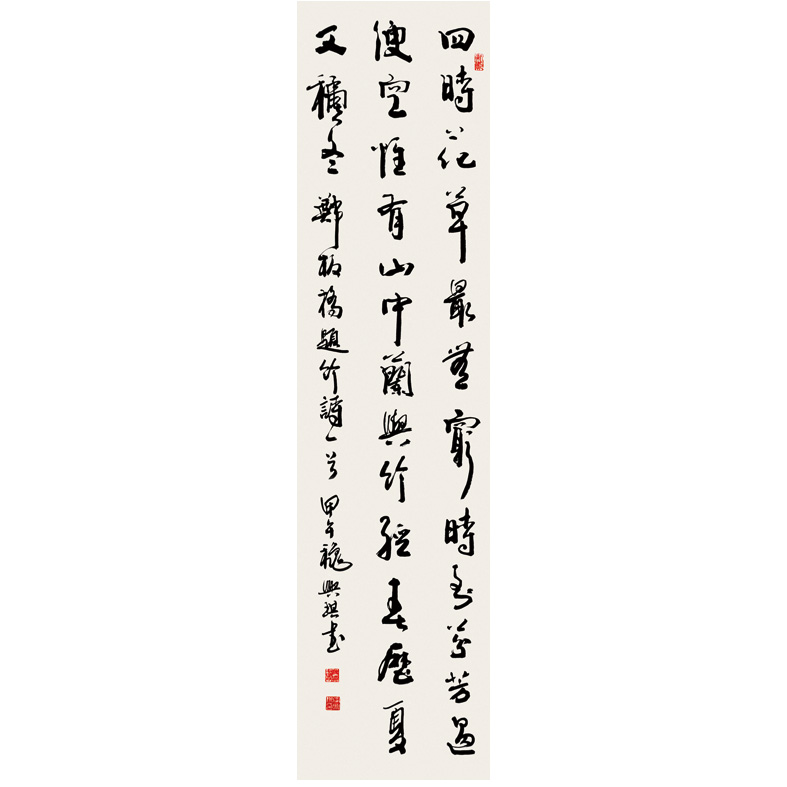 四時花草最無窮時到芬芳過
便空惟有山中蘭與竹經春歷夏
又穐冬鄭板橋題竹詩一首甲午穐興琪書